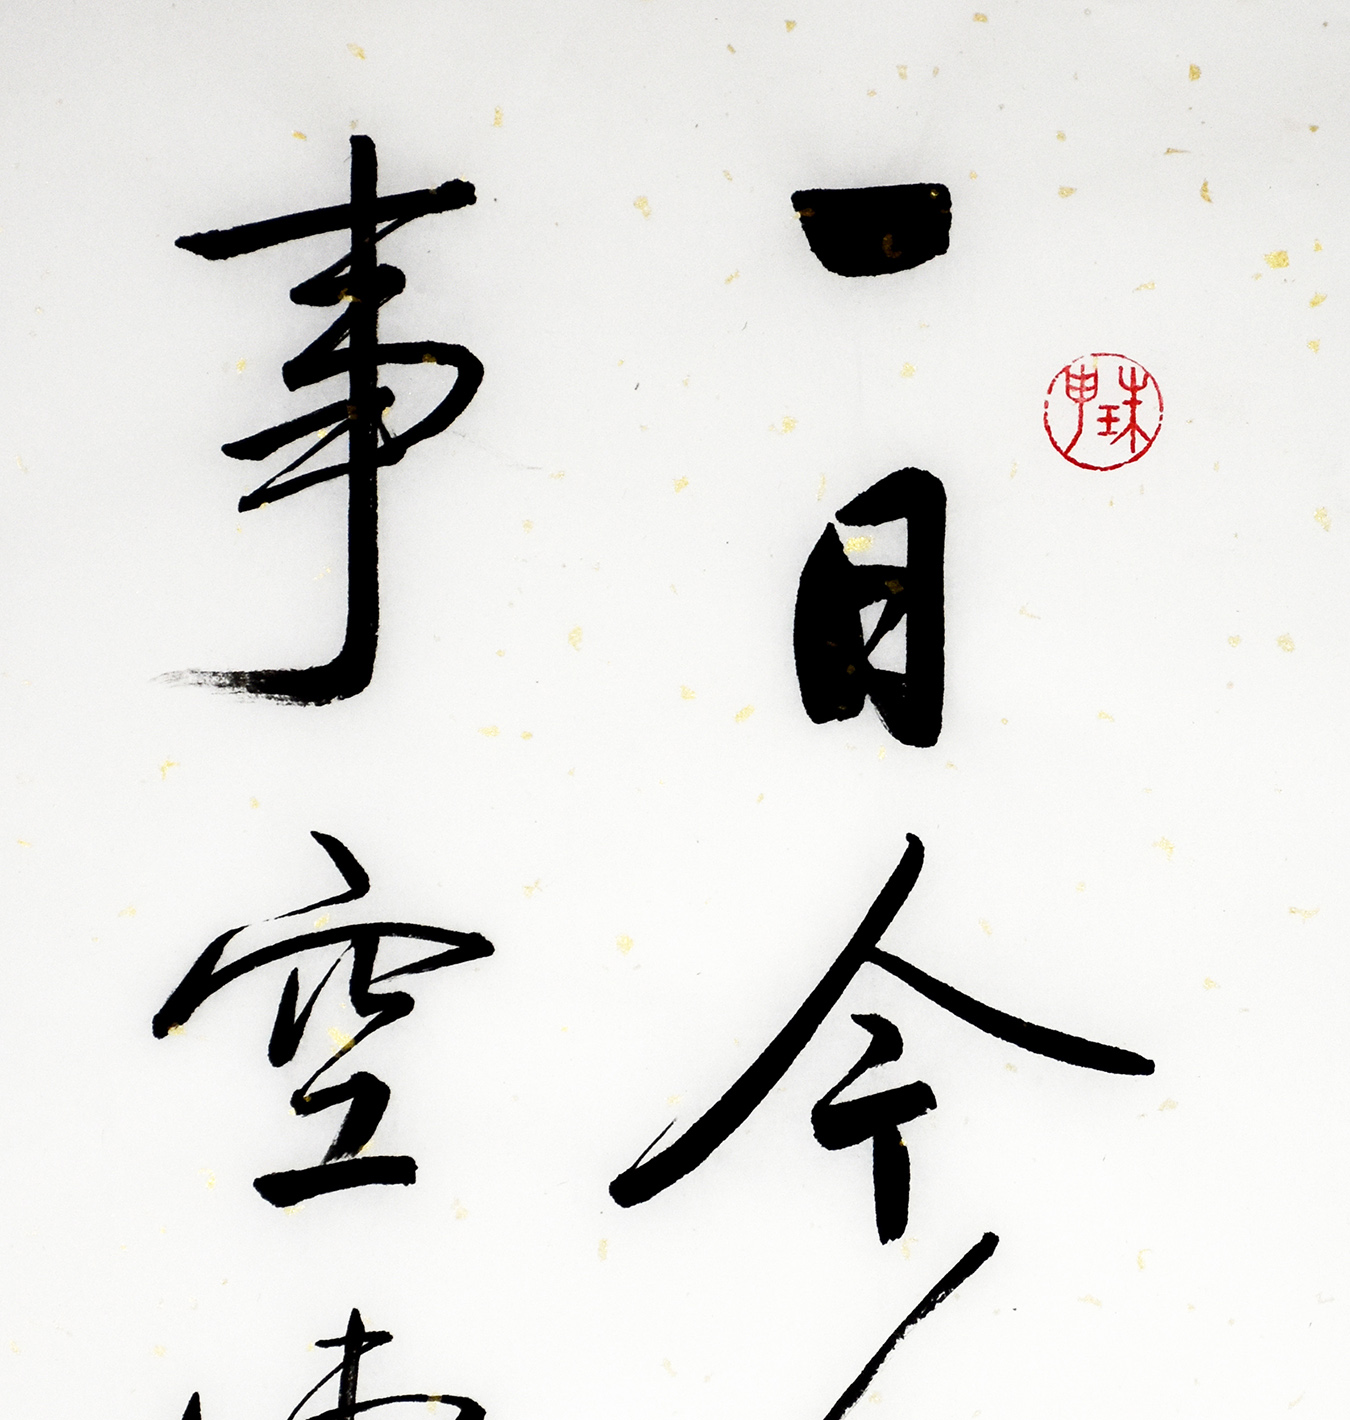 一日今
事空